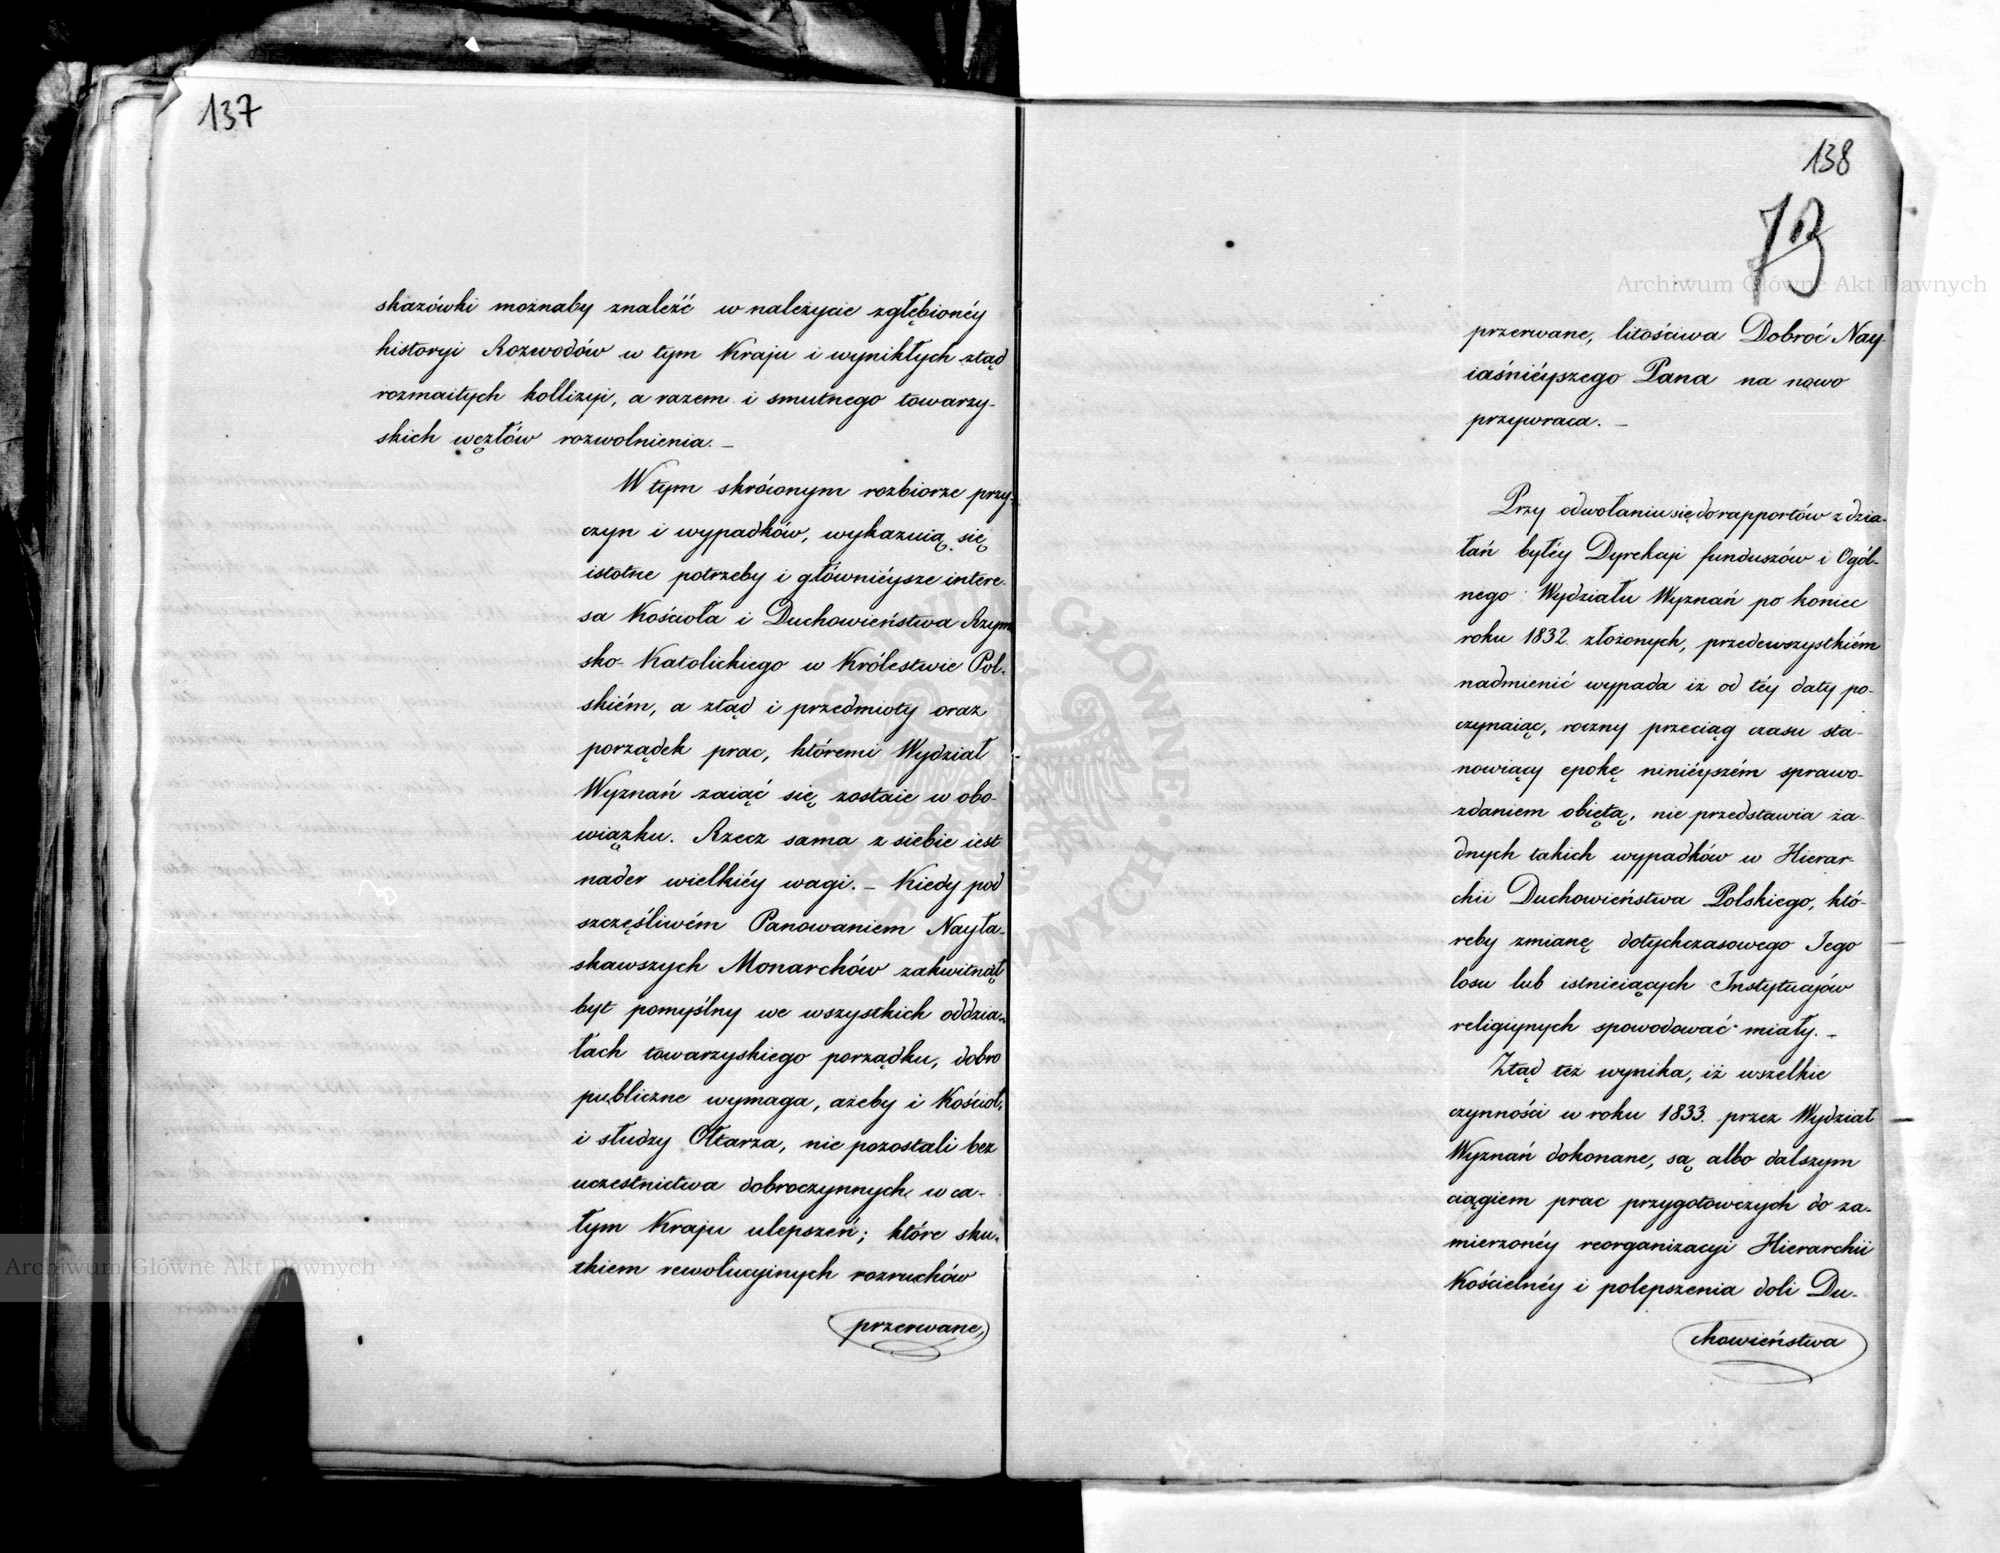 137
skazówki możnaby znaleźć w należycie zgłębionéy
historyi Rozwodów w tym Kraju i wynikłych ztąd
rozmaitych kollizyi, a razem i smutnego towarzy-
skich węzłów rozwolnienia. _
W tym skróconym rozbiorze przy-
czyn i wypadków, wykazuią się
istotne potrzeby i główniéysze intere-
sa Kościoła i Duchowieństwa Rzym
sko-Katolickiego w Królestwie Pol-
skiém, a ztąd i przedmioty oraz
porządek prac, któremi Wydział
Wyznań zaiąć się zostaie w obo-
wiązku. Rzecz sama z siebie iest
nader wielkiéy wagi. _ Kiedy pod
szczęśliwém Panowaniem Nayła-
skawszych Monarchów zakwitnął
byt pomyślny we wszystkich oddzia-
łach towarzyskiego porządku, dobro
publiczne wymaga, ażeby i Kościoł,
i słudzy Ołtarza, nie pozostali bez
uczestnictwa dobroczynnych w ca-
łym Kraju ulepszeń; które sku-
tkiem rewolucyinych rozruchów
przerwane,
138
Archiwum Główne Akt Dawnych
przerwane, litościwa Dobroć Nay-
iaśniéyszego Pana na nowo
przywraca. _
Przy odwołaniu się do rapportów z dzia-
łań byłéy Dyrekcyi funduszów i Ogól-
nego Wydziału Wyznań po koniec
roku 1832. złożonych, przedewszystkiém
nadmienić wypada iż od téy daty po-
czynaiąc, roczny przeciąg czasu sta-
nowiący epokę niniéyszém sprawo-
zdaniem obiętą, nie przedstawia ża-
dnych takich wypadków w Hierar-
chii Duchowieństwa Polskiego, któ-
reby zmianę dotychczasowego Iego
losu lub istnieiących Instytucyów
religiynych spowodować miały. _
Ztąd też wynika, iż wszelkie
czynności w roku 1833. przez Wydział
Wyznań dokonane, są albo dalszym
ciągiem prac przygotowczych do za-
mierzonéy reorganizacyi Hierarchii
Kościelnéy i polepszenia doli Du-
chowieństwa
Archiwum Główne Akt Dawnych